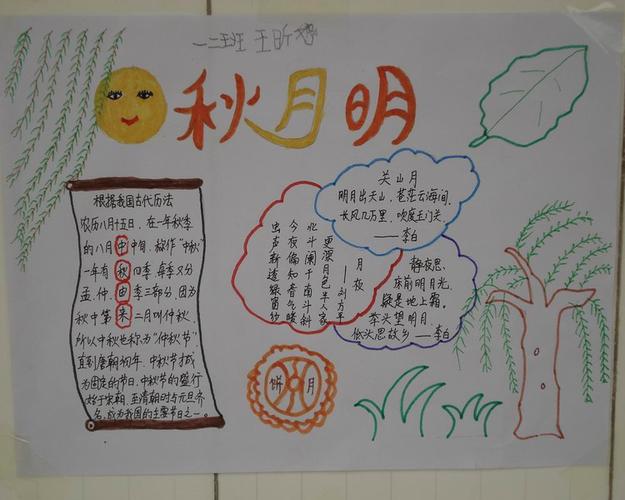 一二班 王昕
秋月明
根据我国古代历法
农历八月十五日，在一年秋季
的八月中旬，故作“中秋”
一年有秋四季，每季又分
孟、仲、由季三部分，因为
秋中第来二月叫仲秋，
所以中秋也称为“仲秋节”，
直到唐朝初年，中秋节才成
为固定的节日，中秋节的盛行
始于宋朝，至清朝时与元旦齐
名，成为我国的主要节日之一。
关山月
明月出天山，苍茫云海间，
长风几万里，吹度玉门关，
——李白
月夜
——刘方平
更深月色半人家
北斗阑干南斗斜
今夜偏知春气暖
虫声新透绿窗纱
静夜思
床前明月光，
疑是地上霜，
举头望明月，
低头思故乡——李白
饼 月